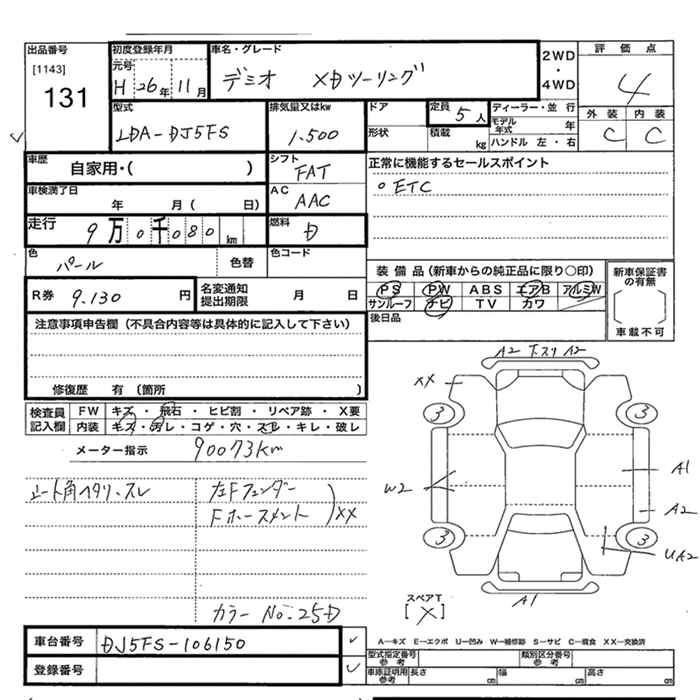 出品番号
[1143]
131
初度登録年月
元号
H 26年 11月
車名・グレード
デミオ XDツーリング
2WD
・
4WD
評価点
4
外装 内装
C C
型式
LDA-DJ5FS
排気量又はkw
1.500
ドア
形状
定員 5人
積載 kg
ディーラー・並行
モデル年式 年
ハンドル 左・右
車歴
自家用・( )
シフト
FAT
正常に機能するセールスポイント
○ETC
車検満了日
年 月( 日)
AC
AAC
走行
9万0千080km
燃料
D
色
パール
色替
色コード
装備品(新車からの純正品に限り○印)
PS PW ABS エアB アルミW
サンルーフ ナビ TV カワ
後日品
新車保証書の有無
[ ]
車載不可
R券 9.130円
名変通知
提出期限
月 日
注意事項申告欄(不具合内容等は具体的に記入して下さい)
修復歴 有(箇所 )
検査員
記入欄
FW キズ・飛石・ヒビ割・リペア跡・X要
内装 キズ・汚レ・コゲ・穴・スレ・キレ・破レ
メーター指示 90073km
シート角ヘタリ・スレ
左Fフェンダー
Fホースメント
)XX
カラーNo.25D
A2 下スリ A2
XX
3 3
W2
A1
A2
3 3
UA2
A1
スペアT
[X]
車台番号 DJ5FS-106150
登録番号
A-キズ E-エクボ U-凹み W-補修跡 S-サビ C-腐食 XX-交換済
型式指定番号
参考
類別区分番号
参考
車庫証明用
参考
長さ cm 幅 cm 高さ cm